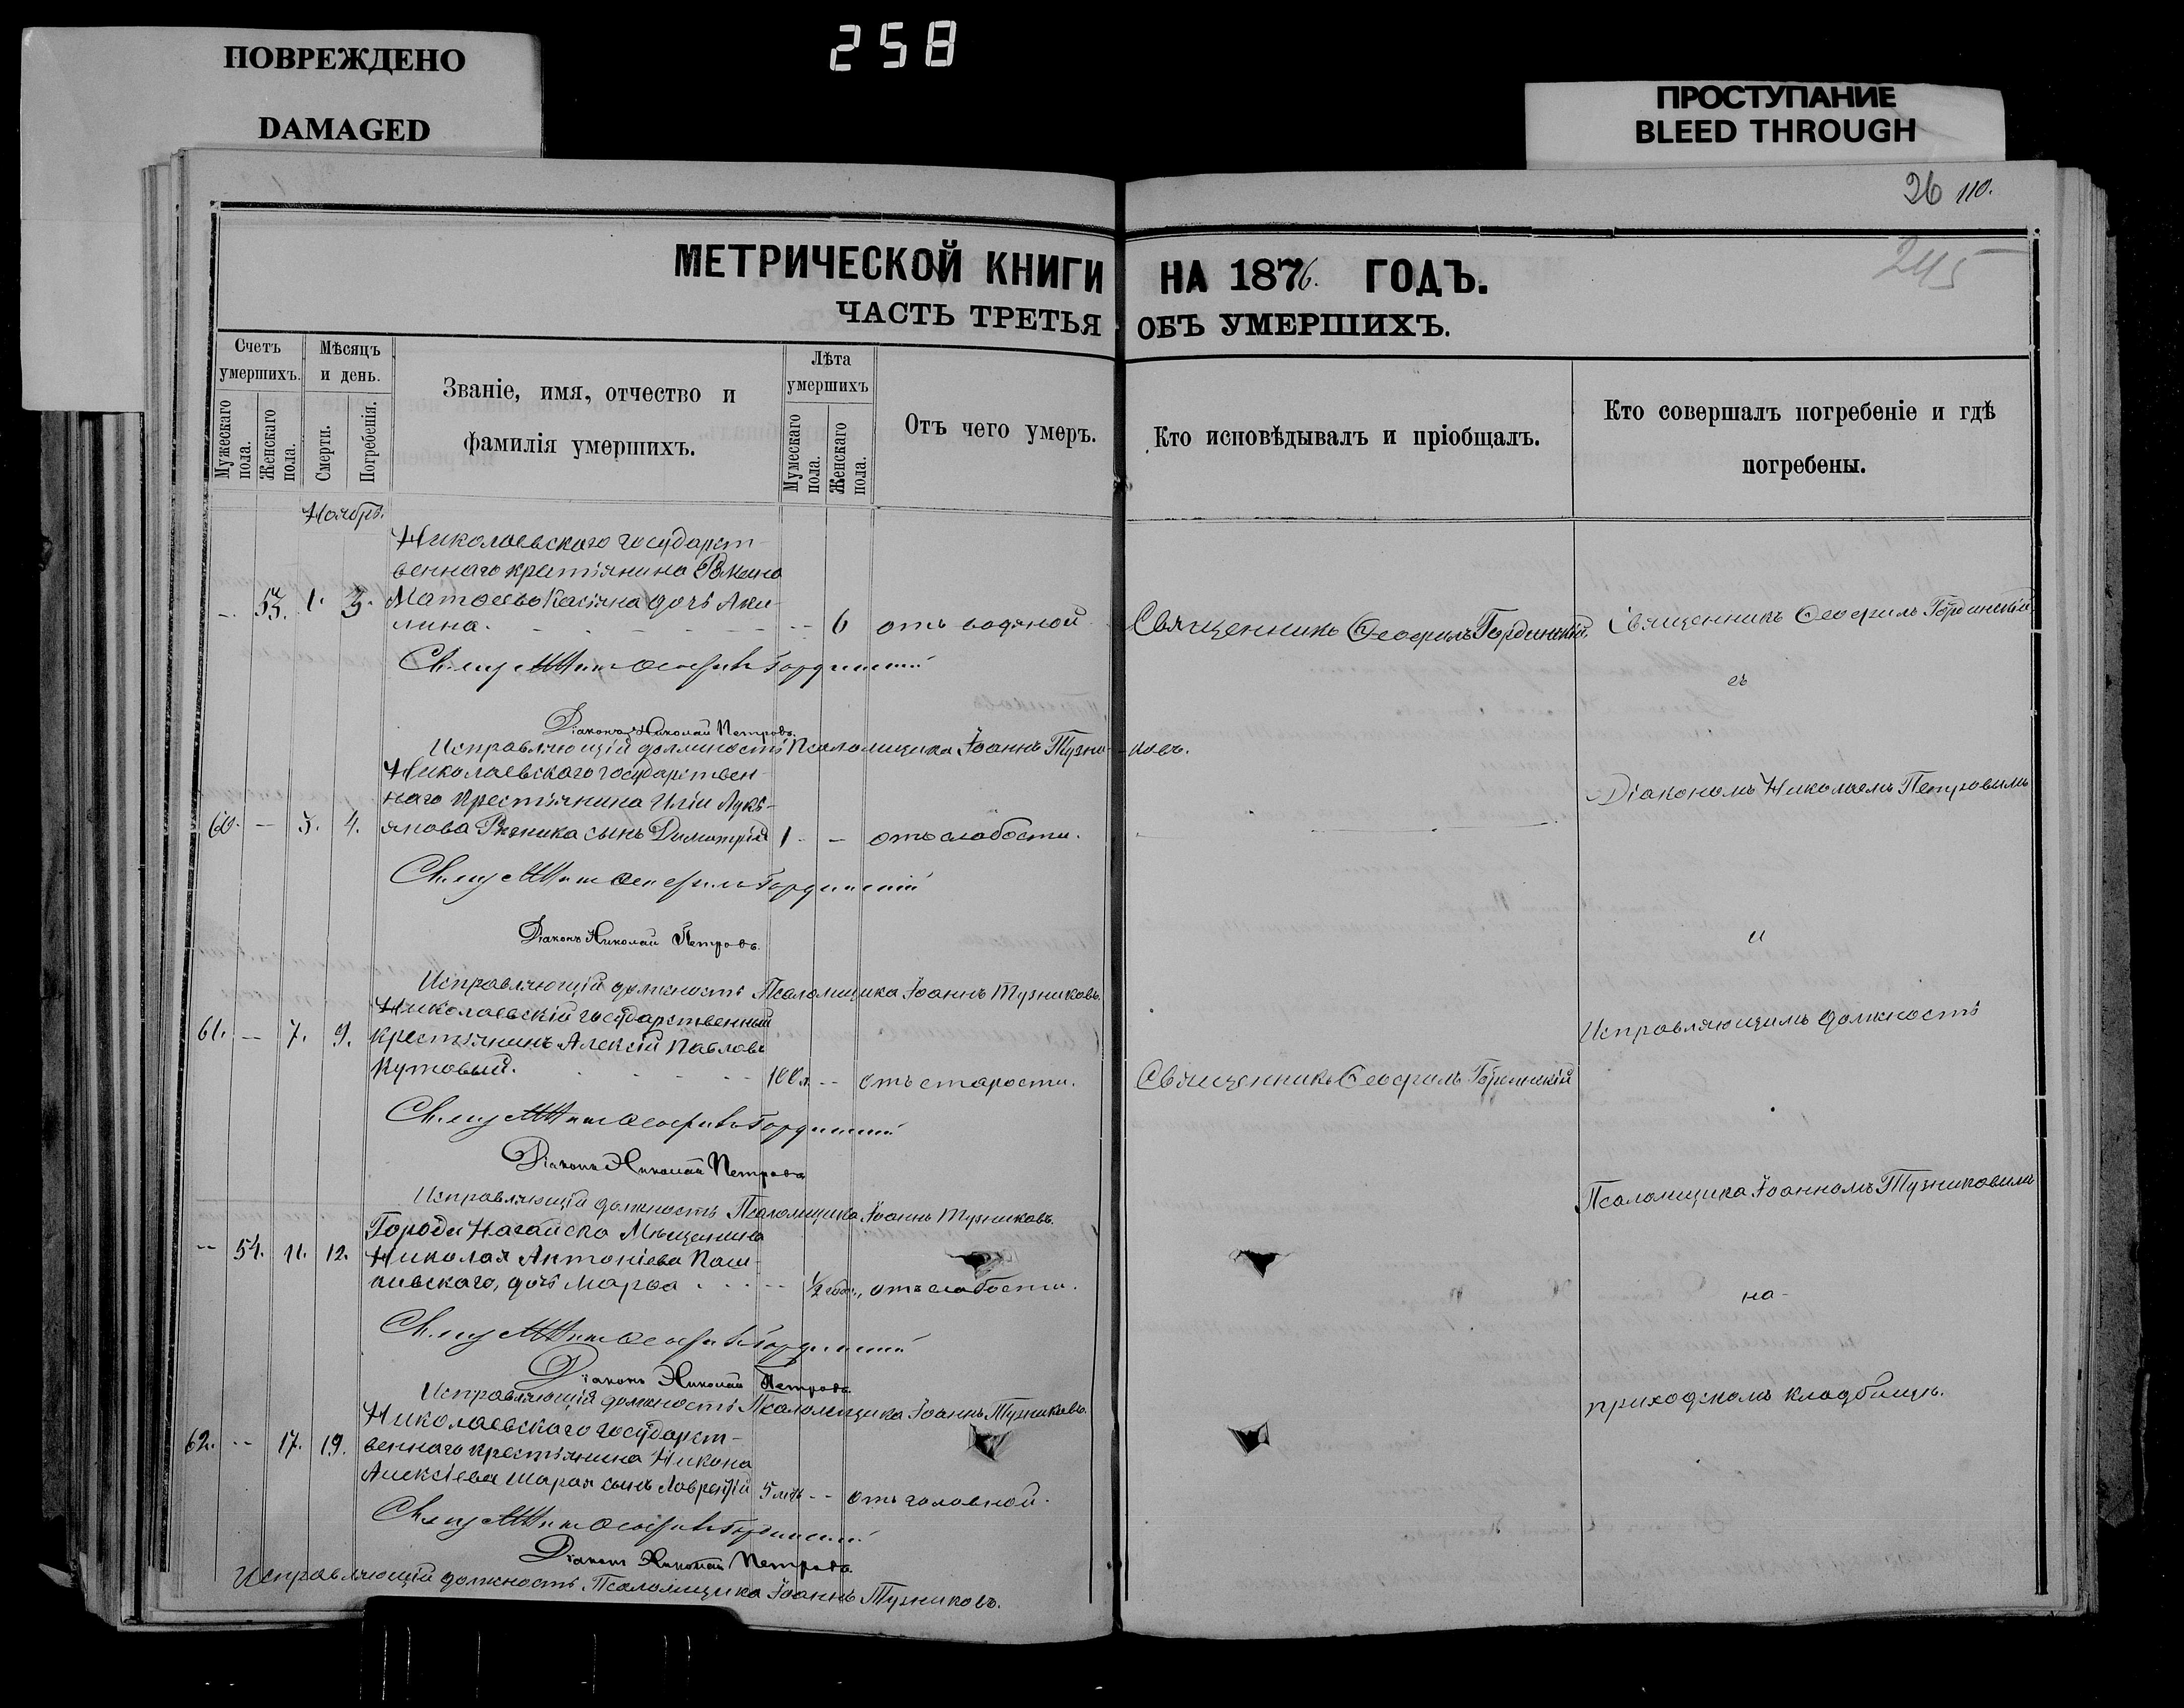 ПОВРЕЖДЕНО
DAMAGED
258
ПРОСТУПАНИЕ
BLEED THROUGH
26 110.
245
МЕТРИЧЕСКОЙ КНИГИ НА 1876. ГОДЪ.
ЧАСТЬ ТРЕТЬЯ ОБЪ УМЕРШИХЪ.
Счетъ умершихъ.
Мужескаго пола.
Женскаго пола.
Мѣсяцъ и день.
Смерти.
Погребенія.
Званіе, имя, отчество и
фамилія умершихъ.
Лѣта умершихъ
Мужескаго пола.
Женскаго пола.
Отъ чего умеръ.
Кто исповѣдывалъ и пріобщалъ.
Кто совершалъ погребеніе и гдѣ
погребены.
Ноябрь.
Николаевскаго государст-
веннаго крестьянина Романа
53. 1. 3. Матѳеева Касяна дочь Аки-
лина. 6 отъ водяной Священникъ Ѳеофилъ Гординскій. Священникъ Ѳеофилъ Гординскій
Гординскій
съ
Діаконъ Николай Петровъ.
Исправляющій должность Псаломщика Іоаннъ Тузни-ковъ.
Николаевскаго государствен-
наго крестьянина Иліи Лукь-
60. - 3. 4. янова Рѣзника сынъ Димитрій 1 - отъ слабости.
Діакономъ Николаемъ Петровымъ
Ѳеофилъ Гординскій
Діаконъ Николай Петровъ.
и
Исправляющій должность Псаломщика Іоаннъ Тузниковъ.
Николаевскій государственный
61. - 7. 9. крестьянинъ Алексій Павловъ
Кутовый. 100 л. - отъ старости. Священникъ Ѳеофилъ Гординскій
Исправляющимъ должность
Гординскій
Діаконъ Николай Петровъ
Исправляющій должность Псаломщика Іоаннъ Тузниковъ.
Псаломщика Іоанномъ Тузниковымъ
Города Нагайска Мѣщанина
-- 54. 11. 12. Николая Антоніева Паш-
кивскаго, дочь Марѳа 1/2 года, отъ слабости.
на-
Гординскій
Діаконъ Николай Петровъ.
Исправляющій должность Псаломщика Іоаннъ Тузниковъ.
приходскомъ кладбищѣ.
Николаевскаго государст-
62. -- 17. 19. веннаго крестьянина Никона
Алексіева Шарая сынъ Лаврентій 5 лѣтъ - - отъ головной.
Гординскій
Діаконъ Николай Петровъ
Исправляющій должность Псаломщика Іоаннъ Тузниковъ.